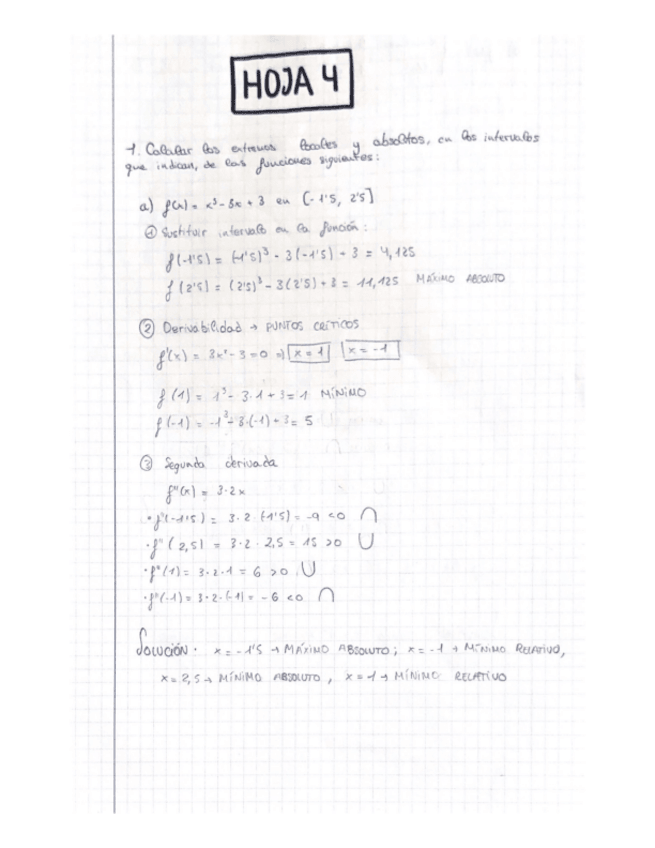 HOJA 4
1. Calcular los extremos locales y absolutos, en los intervalos
que indican, de las funciones siguientes:
a) f(x) = x³ - 3x + 3 en [-1'5, 2'5]
① Sustituir intervalo en la función:
f(-1'5) = (-1'5)³ - 3(-1'5) + 3 = 4,125
f(2'5) = (2'5)³ - 3(2'5) + 3 = 11,125 MÁXIMO ABSOLUTO
② Derivabilidad → PUNTOS CRÍTICOS
f'(x) = 3x² - 3 = 0 ⇒ x = 1 x = -1
f(1) = 1³ - 3·1 + 3 = 1 MÍNIMO
f(-1) = -1³ - 3·(-1) + 3 = 5
③ Segunda derivada
f''(x) = 3·2x
· f''(-1'5) = 3·2·(-1'5) = -9 <0 ∩
· f''(2,5) = 3·2·2,5 = 15 >0 ∪
· f''(1) = 3·2·1 = 6 >0 ∪
· f''(-1) = 3·2·(-1) = -6 <0 ∩
SOLUCIÓN· x = -1'5 → MÁXIMO ABSOLUTO; x = -1 → MÍNIMO RELATIVO,
x = 2,5 → MÍNIMO ABSOLUTO, x = 1 → MÍNIMO RELATIVO